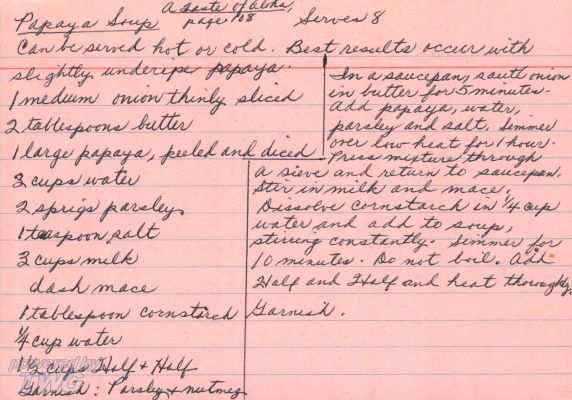 A Taste of Aloha,
Papaya Soup page 108 Serves 8
Can be served hot or cold. Best results occur with
slightly underipe papaya.
1 medium onion thinly sliced
2 tablespoons butter
1 large papaya, peeled and diced
3 cups water
2 sprigs parsley
1 teaspoon salt
3 cups milk
dash mace
1 tablespoon cornstarch
1/4 cup water
1 1/2 cups Half + Half
Garnish: Parsley + nutmeg
In a saucepan, sauté onion
in butter for 5 minutes.
Add papaya, water,
parsley and salt. Simmer
over low heat for 1 hour.
Press mixture through
a sieve and return to saucepan.
Stir in milk and mace.
Dissolve cornstarch in 1/4 cup
water and add to soup,
stirring constantly. Simmer for
10 minutes. Do not boil. Add
Half and Half and heat thoroughly.
Garnish.
powered by
TWG